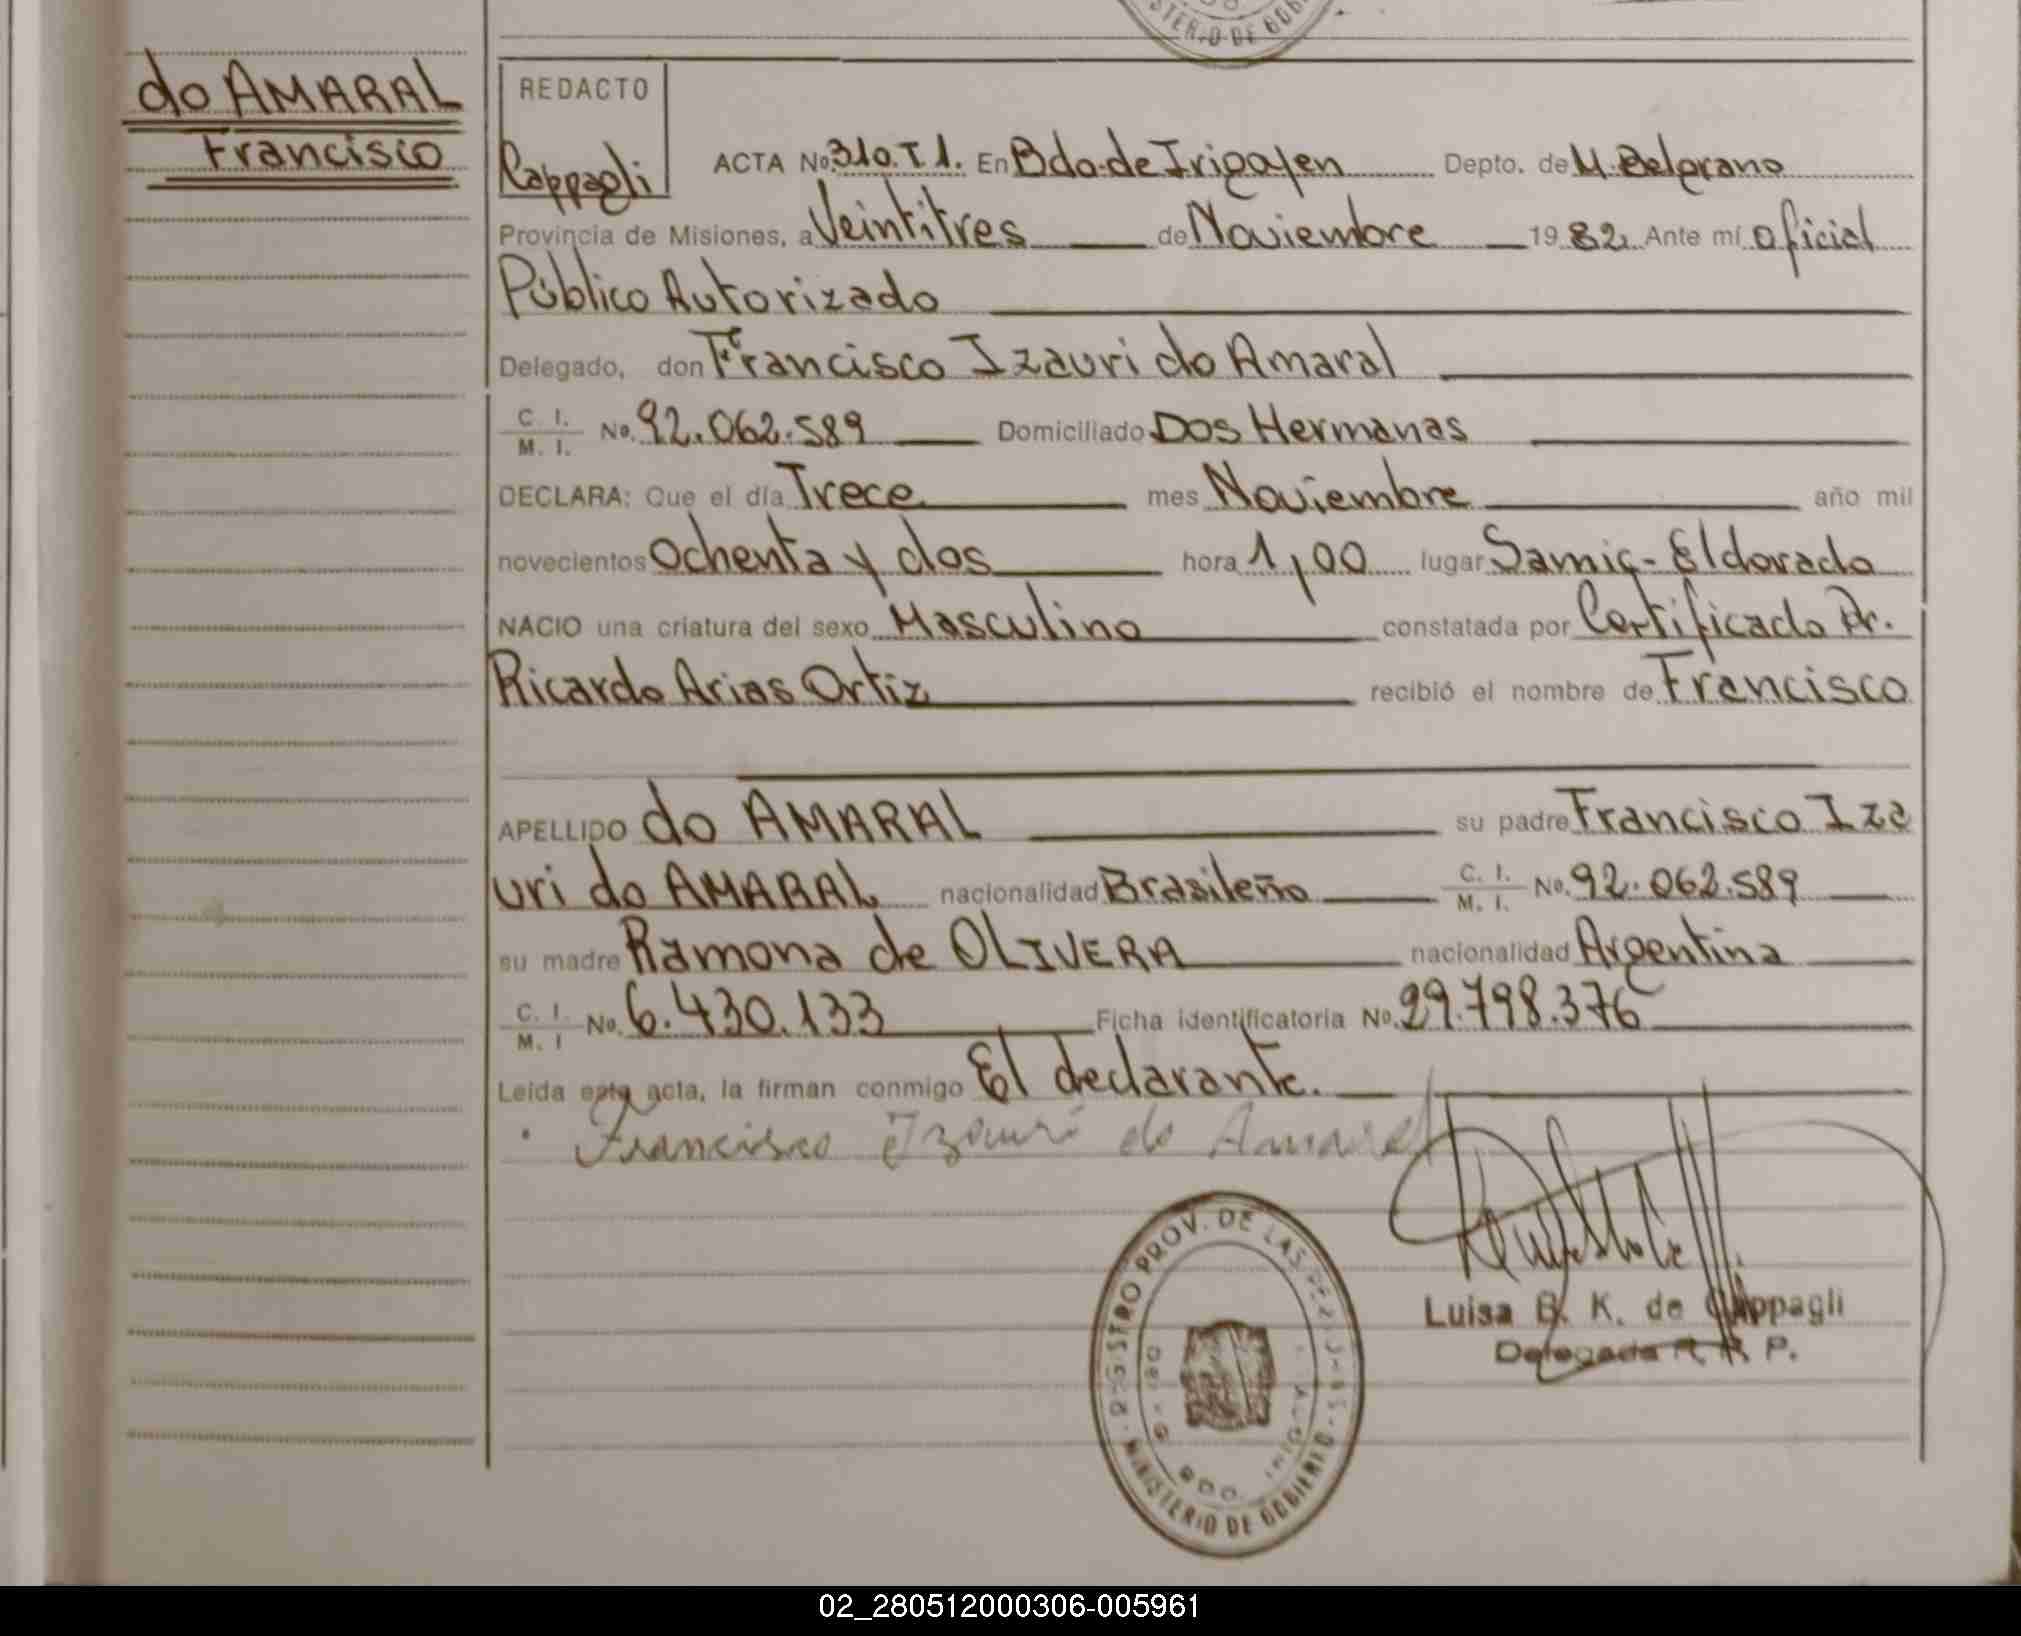 STERIO DE GOBI
do AMARAL
Francisco
REDACTO
Cappagli
ACTA No. 310. T 1. En Bdo. de Irigoyen Depto. de M. Belgrano
Provincia de Misiones, a Veintitres de Noviembre 19 82. Ante mí oficial
Público Autorizado
Delegado, don Francisco Izauri do Amaral
C. I. / M. I. No. 92.062.589 Domiciliado Dos Hermanas
DECLARA: Que el día Trece mes Noviembre año mil
novecientos Ochenta y dos hora 1,00 lugar Samic - Eldorado
NACIO una criatura del sexo Masculino constatada por Certificado Dr.
Ricardo Arias Ortiz recibió el nombre de Francisco
APELLIDO do AMARAL su padre Francisco Iza
uri do AMARAL nacionalidad Brasileño C. I. / M. I. No. 92.062.589
su madre Ramona de OLIVERA nacionalidad Argentina
C. I. / M. I No. 6.430.133 Ficha identificatoria No. 29.798.376
Leída esta acta, la firman conmigo El declarante.
Francisco Izauri do Amaral
Luisa B. K. de Cappagli
Delegada R. R. P.
REGISTRO PROV. DE LAS PERSONAS
MINISTERIO DE GOBIERNO
BDO. IRIGOYEN
02_280512000306-005961